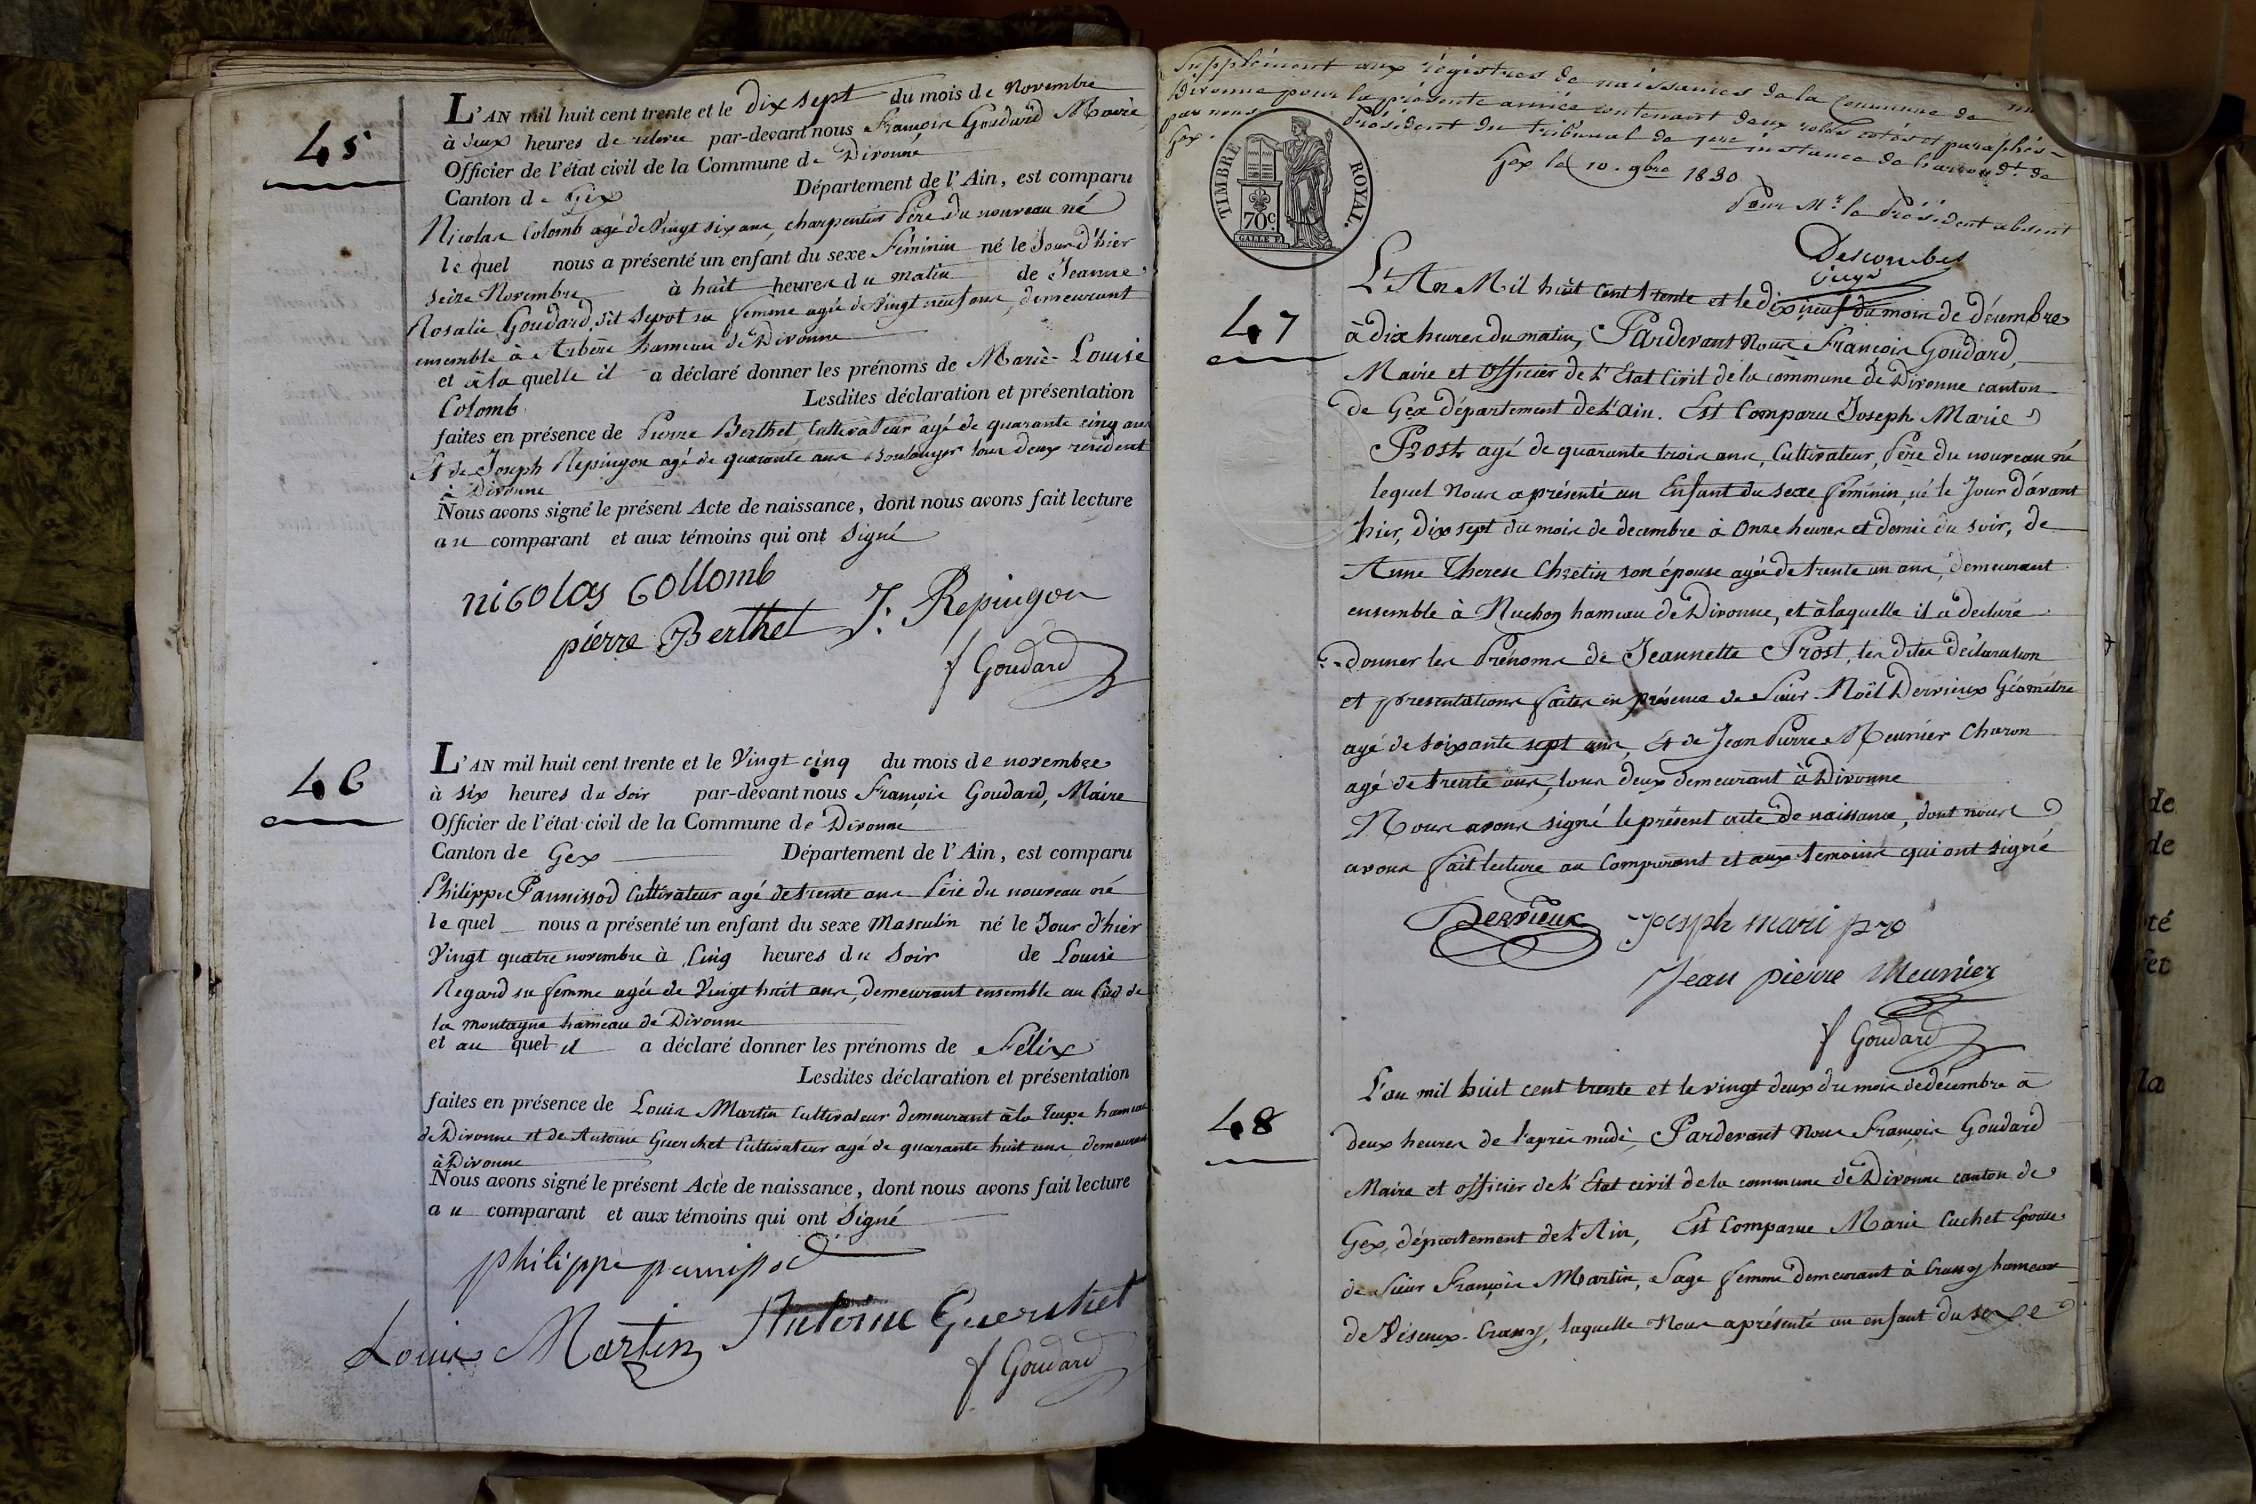 45
L'AN mil huit cent trente et le dix sept du mois de Novembre
à deux heures de relevée par-devant nous François Goudard Maire
Officier de l'état civil de la Commune de Divonne
Canton de Gex Département de l'Ain, est comparu
Nicolas Colomb agé de Vingt six ans, charpentier Père du nouveau né
le quel nous a présenté un enfant du sexe Féminin né le Jour d'hier
seize Novembre à huit heures du matin de Jeanne
Rosalie Goudard, dit sa femme agée de vingt neuf ans, demeurant
ensemble à Arbère hameau de Divonne
et à la quelle il a déclaré donner les prénoms de Marie-Louise
Colomb Lesdites déclaration et présentation
faites en présence de Pierre Berthet, Cultivateur agé de quarante cinq ans
Et de Joseph Repingon agé de quarante ans Boulanger tous deux résident
à Divonne
Nous avons signé le présent Acte de naissance, dont nous avons fait lecture
au comparant et aux témoins qui ont Signé
nicolas collomb
pierre Berthet J. Repingon
f Goudard
46
L'AN mil huit cent trente et le Vingt cinq du mois de novembre
à six heures du soir par-devant nous François Goudard, Maire
Officier de l'état civil de la Commune de Divonne
Canton de Gex Département de l'Ain, est comparu
Philippe Pannissod Cultivateur agé de trente ans Père du nouveau né
le quel nous a présenté un enfant du sexe Masculin né le Jour d'hier
Vingt quatre novembre à Cinq heures du Soir de Louise
Regard sa femme agée de Vingt huit ans, demeurant ensemble au Pied de
la montagne hameau de Divonne
et au quel il a déclaré donner les prénoms de Félix
Lesdites déclaration et présentation
faites en présence de Louis Martin Cultivateur demeurant à la hameau
de Divonne et de Antoine Guerchet Cultivateur agé de quarante huit ans demeurant
à Divonne
Nous avons signé le présent Acte de naissance, dont nous avons fait lecture
au comparant et aux témoins qui ont Signé
philippe pannissod
Louis Martin Antoine Guerchet
f Goudard
Supplément aux régistres de naissances de la Commune de
Divonne pour la présente année contenant deux rôles cotés et paraphés
par nous Président du tribunal de 1ere instance de l'arrond.t de
Gex.
Gex le 10. 9bre 1830
Pour Mr. le Président absent
Descombes
Juge
TIMBRE ROYAL.
70c.
47
L'An Mil huit Cent trente et le dix neuf du mois de décembre
à dix heures du matin, Pardevant Nous François Goudard,
Maire et Officier de L'Etat Civil de la commune de Divonne canton
de Gex département de L'ain. Est Comparu Joseph Marie
Prost agé de quarante trois ans, Cultivateur, Père du nouveau né
lequel Nous a présenté un Enfant du sexe féminin, né le Jour d'avant
hier, dix sept du mois de decembre à Onze heures et demie du soir, de
Anne Therese Chretin son épouse agée de trente un ans, demeurant
ensemble à Ruchon hameau de Divonne, et à laquelle il a declaré
donner les Prénoms de Jeannette Prost, les dites déclaration
et presentations faites en présence de Sieur Noël Dervieux Géométre
agé de soixante sept ans, Et de Jean Pierre Meunier Charon
agé de trente ans, tous deux demeurant à Divonne
Nous avons signé le présent acte de naissance, dont nous
avons fait lecture au Comparant et aux temoins qui ont signé
Dervieux Joseph mari pro
Jean pierre Meunier
f Goudard
48
L'an mil huit cent trente et le vingt deux du mois de décembre à
deux heures de l'après midi, Pardevant Nous François Goudard
Maire et officier de L'Etat civil de la commune de Divonne canton de
Gex, département de L'Ain, Est Comparue Marie Cuchet Epouse
de Sieur François Martin, Sage femme demeurant à Crassy hameau
de Vésenex-Crassy, laquelle Nous a présenté un enfant du sexe